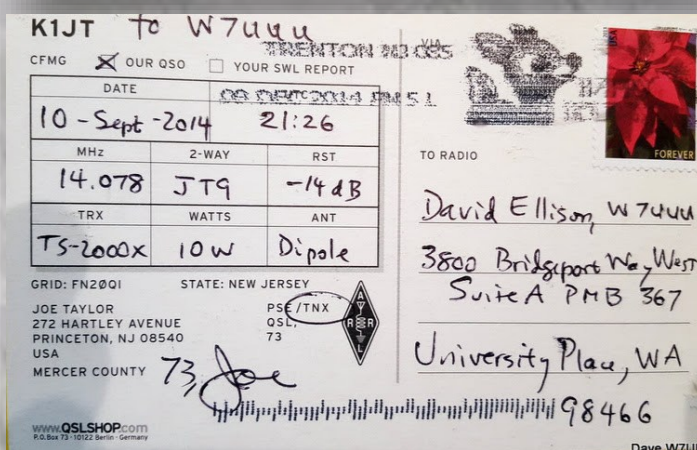 K1JT to W7UUU
TRENTON NJ 085
CFMG ☒ OUR QSO ☐ YOUR SWL REPORT
2014 PM 5 L
DATE
10-Sept-2014 21:26
MHz 2-WAY RST
14.078 JT9 -14 dB
TRX WATTS ANT
TS-2000x 10W Dipole
GRID: FN20QI STATE: NEW JERSEY
JOE TAYLOR
272 HARTLEY AVENUE
PRINCETON, NJ 08540
USA
MERCER COUNTY
PSE/TNX
QSL,
73
A
R R
L
73, Joe
www.QSLSHOP.com
P.O.Box 73 · 10122 Berlin · Germany
VIA
USA
FOREVER
TO RADIO
David Ellison, W7UUU
3800 Bridgeport Way West
Suite A PMB 367
University Place, WA
98466